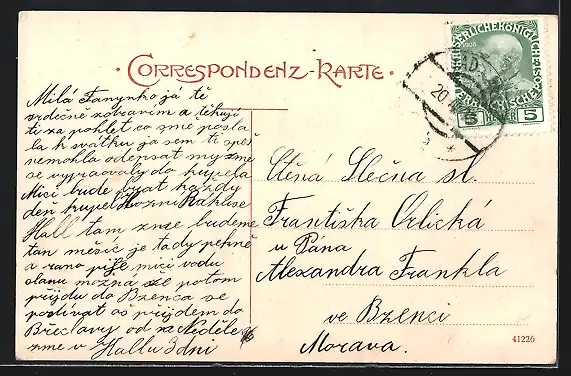 CORRESPONDENZ-KARTE.
Milá Fanynko já tě
srdečně zdravim a děkuji
ti za pohlet co sme posla
la k svátku ja sem ti spěš
nemohla odepsat my sme
se vypravovaly do kupela
Mici bude brat každy
deň kupel
Hall tam zme budeme
tan měsic je tady pěkně
a rano pije mici vodu
slanu možna ze potom
prijdu do Bzenca se
podivat až přijdem do
Břeclavy od Neděle
zme v Hallu 3 dni
Ctěná Slečna sl.
Františka Orlická
u Pána
Alexandra Frankla
ve Bzenci
Morava.
1908
5 HELLER 5
20
41226